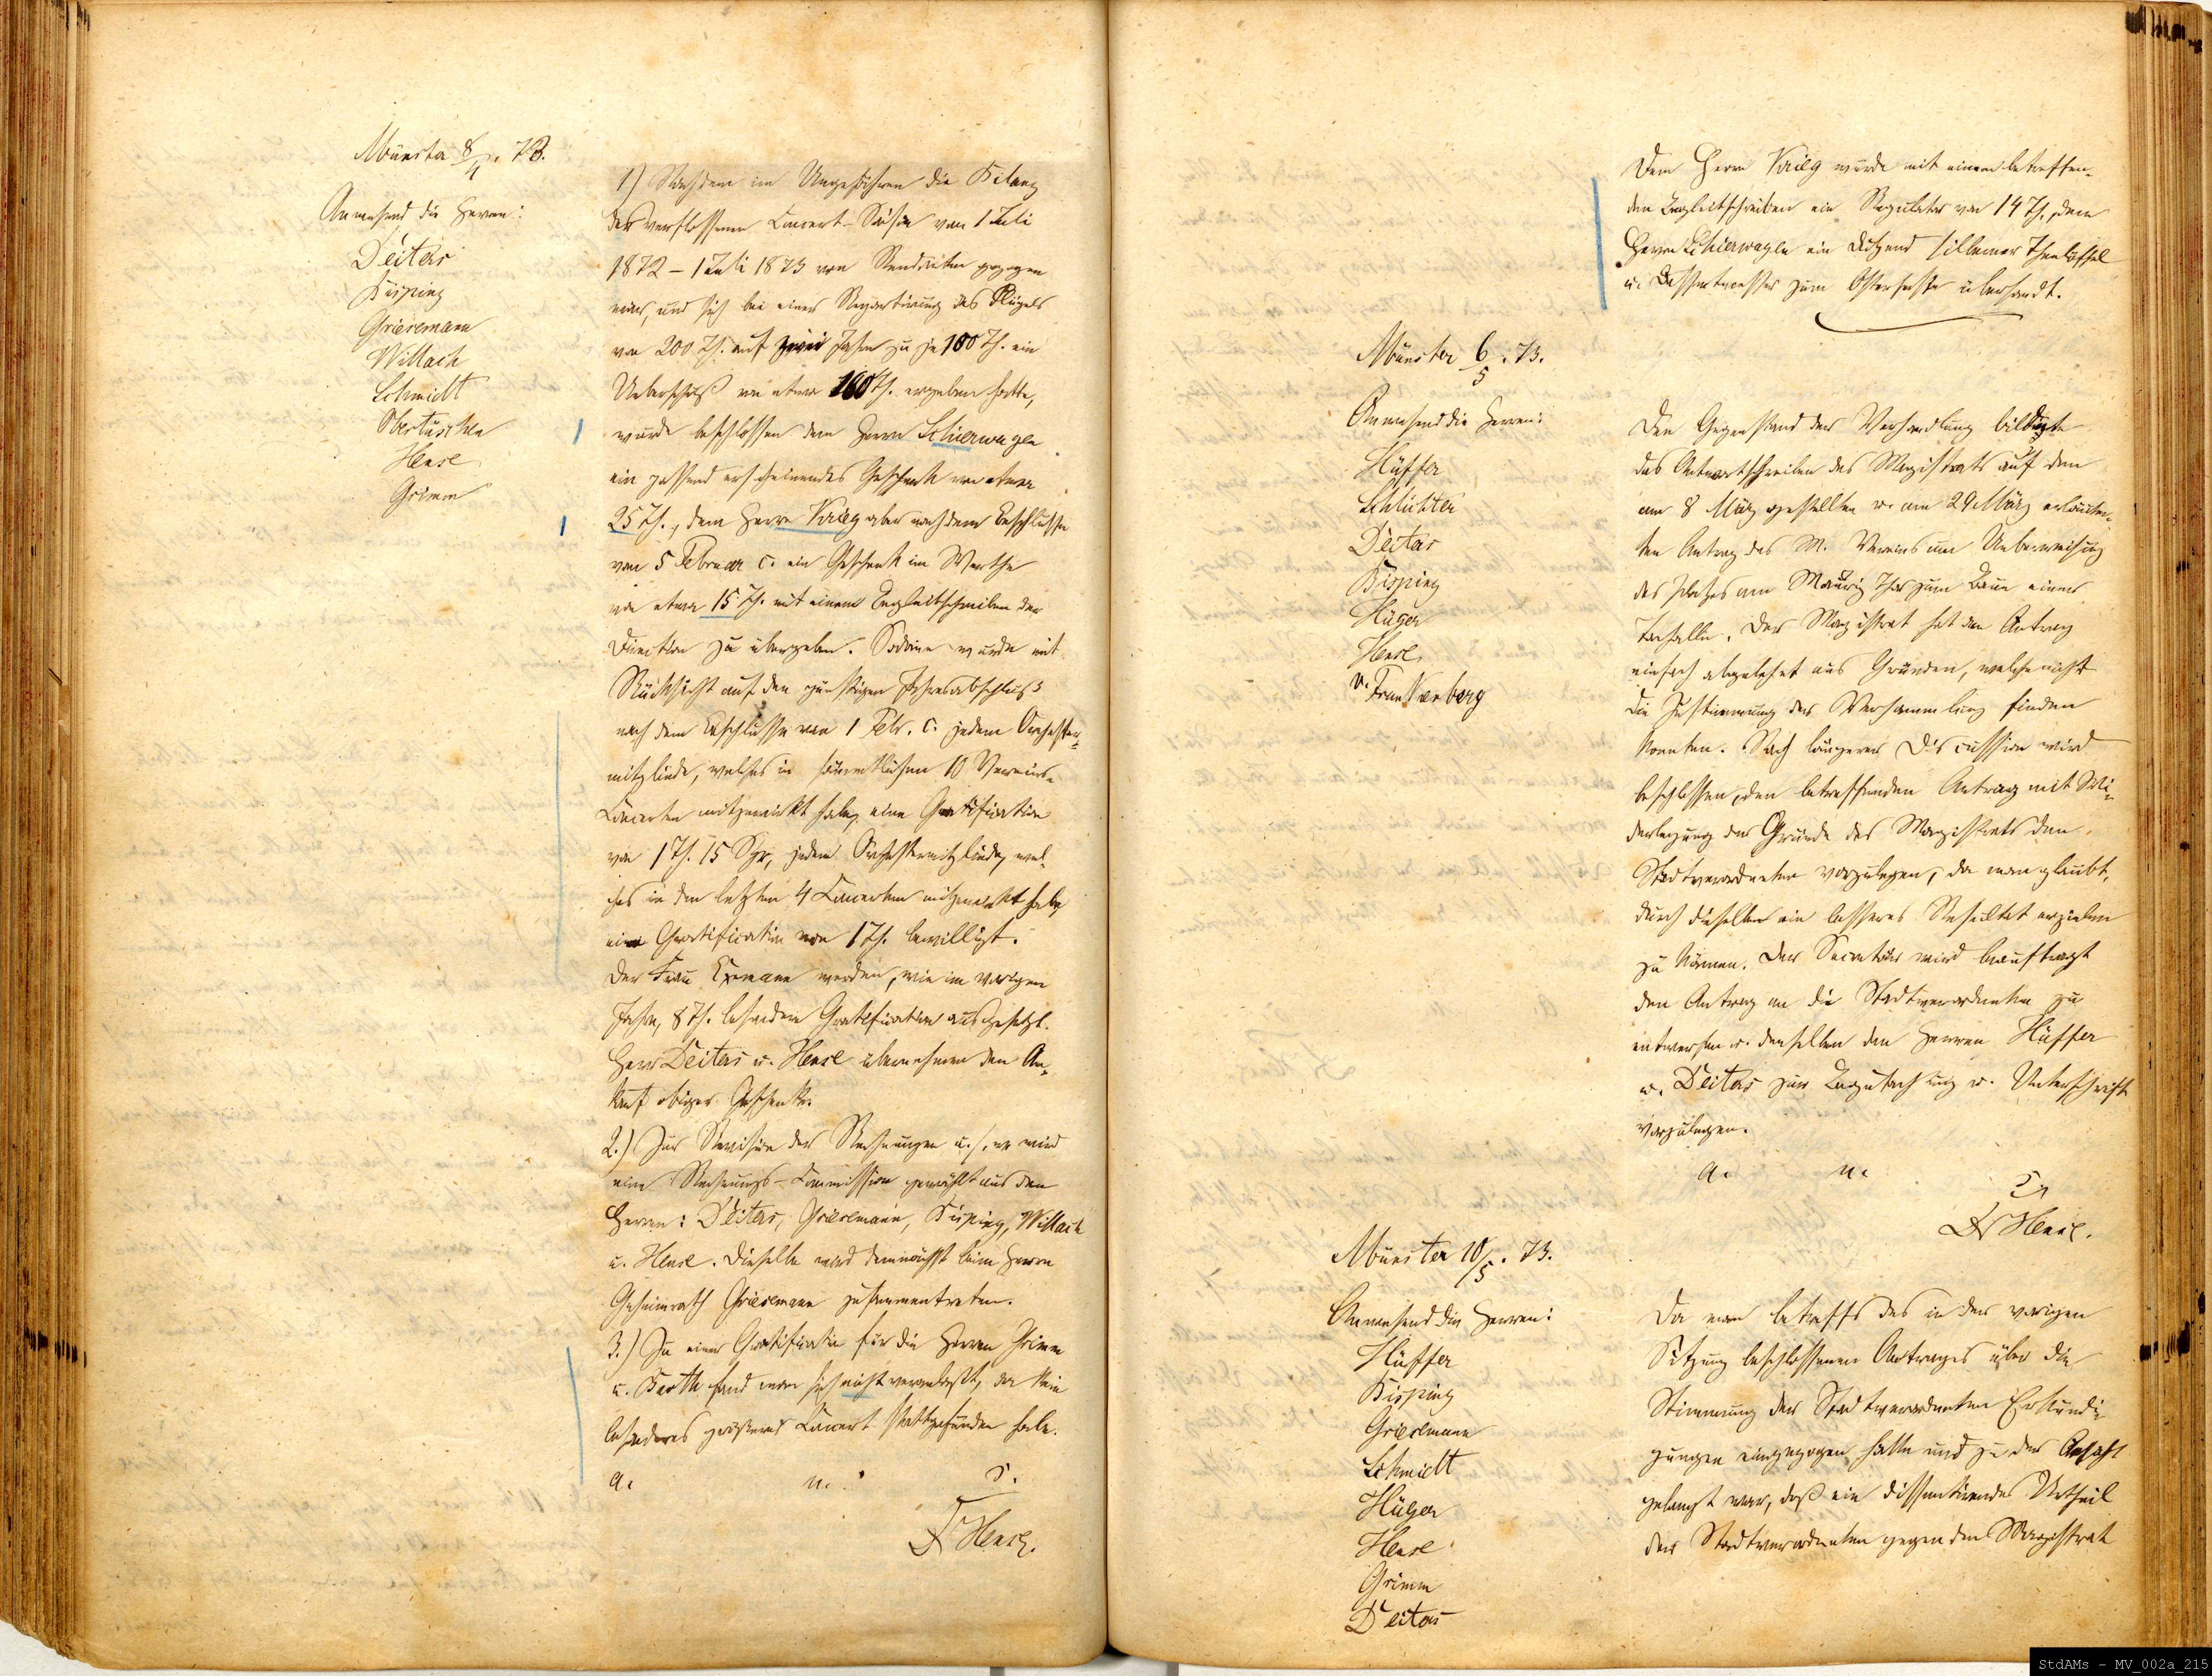 Münster 8/4. 73.
Anwesend die Herren:
Deiters
Kisping
Griesemann
Willach
Schmidt
Obertüschen
Hense
Grimm
1) Nachdem im Ungefähren die Bilanz
der verflossenen Concert-Saison vom 1 Juli
1872 – 1 Juli 1873 vom Rendanten gezogen
war, und sich bei einer Repartirung des Flügels
von 200 Th. auf zwei Jahre zu je 100 Th. ein
Ueberschuß von etwa 160 Th. ergeben hatte,
wurde beschlossen dem Herrn Schierwagen
ein passend erscheinendes Geschenk von etwa
25 Th., dem Herrn Krieg aber nach dem Beschlusse
vom 5 Februar c. ein Geschenk im Werthe
von etwa 15 Th. mit einem Begleitschreiben der
Direction zu übergeben. Sodann wurde mit
Rücksicht auf den günstigen Jahresabschluß
nach dem Beschlusse vom 1 Febr. c. jedem Orchester-
mitgliede, welches in sämmtlichen 10 Vereins-
Concerten mitgewirkt habe, eine Gratification
von 1 Th. 15 Sgr, jedem Orchestermitgliede, wel-
ches in den letzten 4 Concerten mitgewirkt habe
eine Gratification von 1 Th. bewilligt.
Der Frau Exmann werden, wie im vorigen
Jahre, 8 Th. besondere Gratification ausgesetzt.
Herr Deiters u. Hense übernehmen den An-
kauf obiger Geschenke.
2.) Zur Revision der Rechnungen u.s.w wird
eine Rechnungs-Commission gewählt aus den
Herren: Deiters, Griesemann, Kisping, Willach
u. Hense. Dieselbe wird demnächst beim Herrn
Geheimrath Griesemann zusammentreten.
3.) Zu einer Gratification für die Herren Grimm
u. Barth fand man sich nicht veranlaßt, da kein
besonderes größeres Concert stattgefunden habe.
a. u. s.
Dr Hense.
Dem Herrn Krieg wurde mit einem betreffen-
den Begleitschreiben ein Regulator von 14 Th., dem
Herrn Schierwagen ein Dutzend silberner Theelöffel
u. Dessertmesser zum Osterfeste übersandt.
Münster 6/5. 73.
Anwesend die Herren:
Hüffer
Schlichter
Deiters
Kisping
Hüger
Hense
v. Frankenberg
Den Gegenstand der Verhandlung bildete
das Antwortschreiben des Magistrats auf den
am 8 März gestellten u. am 29 März erläuter-
ten Antrag des M. Vereins um Ueberweisung
des Platzes am Mauriz Thor zum Baue einer
Tonhalle. Der Magistrat hat den Antrag
einfach abgelehnt aus Gründen, welche nicht
die Zustimmung der Versammlung finden
konnten. Nach längerer Discussion wird
beschlossen, den betreffenden Antrag mit Wi-
derlegung der Gründe des Magistrats den
Stadtverordneten vorzulegen, da man glaubt,
durch dieselben ein besseres Resultat erzielen
zu können. Der Secretär wird beauftragt
den Antrag an die Stadtverordneten zu
entwerfen u. denselben den Herren Hüffer
u. Deiters zur Begutachtung u. Unterschrift
vorzulegen.
a. u. s.
Dr Hense.
Münster 10/5. 73.
Anwesend die Herren:
Hüffer
Kisping
Griesemann
Schmidt
Hüger
Hense
Grimm
Deiters
Da man betreffs des in der vorigen
Sitzung beschlossenen Antrages über die
Stimmung der Stadtverordneten Erkundi-
gungen eingezogen hatte und zu der Ansicht
gelangt war, daß ein dissentirendes Urtheil
der Stadtverordneten gegen den Magistrat
StdAMs - MV_002a_215